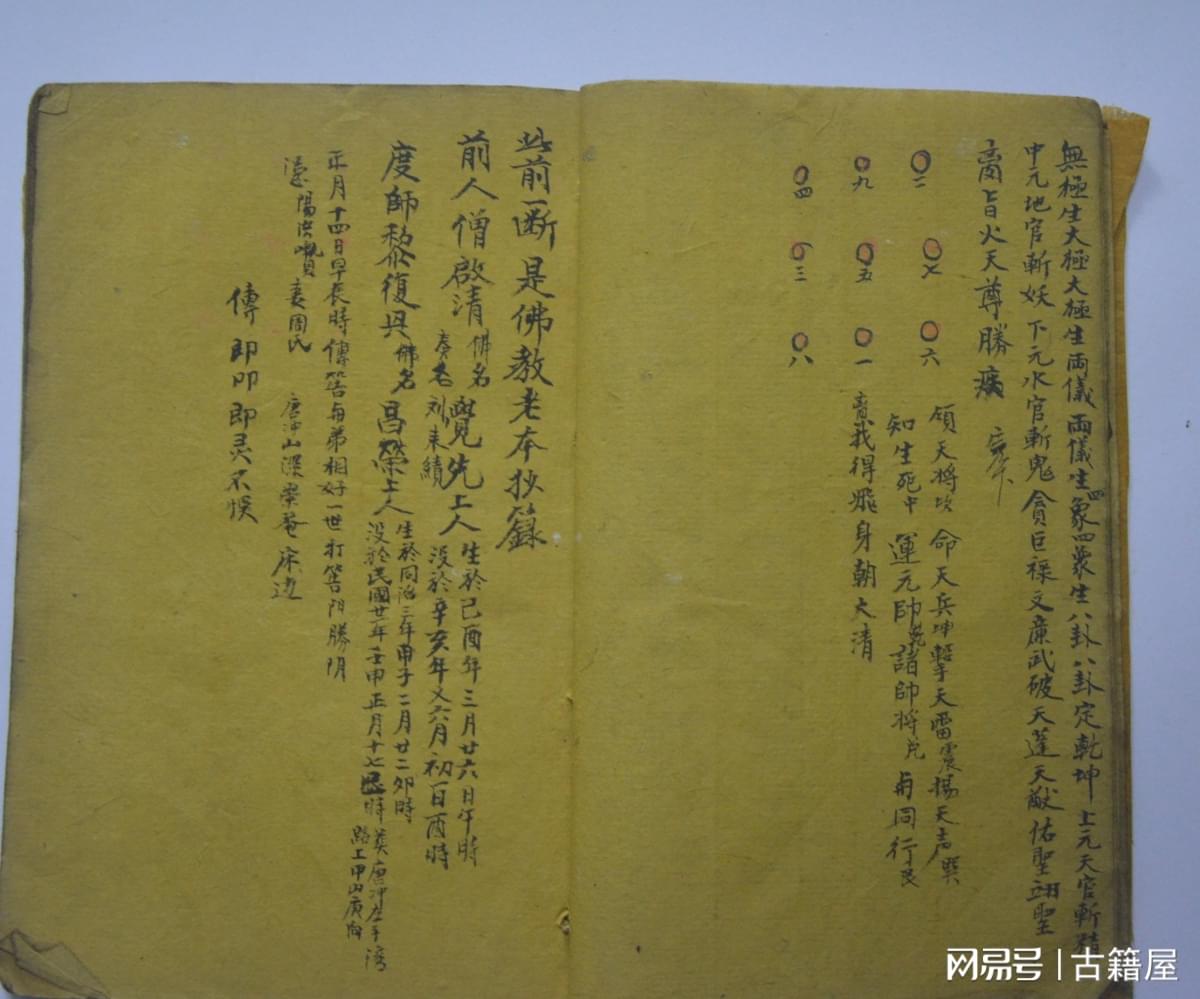 無極生太極太極生両儀両儀生四象四象生八卦八卦定乾坤上元天官斬精
中元地官斬妖下元水官斬鬼貪巨祿文廉武破天蓬天猷佑聖翊聖
旨火天尊勝
二 七 六
九 五 一
四 三 八
領天將坎 命天兵坤 擊天雷震 揚天声巽
知生死中 運元帥乾 諸帥將兑 与同行艮
我得飛身朝太清
此前一断是佛教老本抄籙
前人僧啟清 佛名 覺先上人 生於己酉年三月廿六日午時
奏名 刘来績 没於辛亥年又六月初一日酉時
度師黎復興 佛名 昌榮上人 生於同治三年甲子二月廿二卯時
没於民國廿一年壬申正月十七時 葬唐冲 路上甲山庚向
正月十四日早辰時傳筶与弟相好一世打筶門勝阴
陽 妻周氏 唐冲山深 庵床边
傳 即即即灵不悮
网易号 | 古籍屋